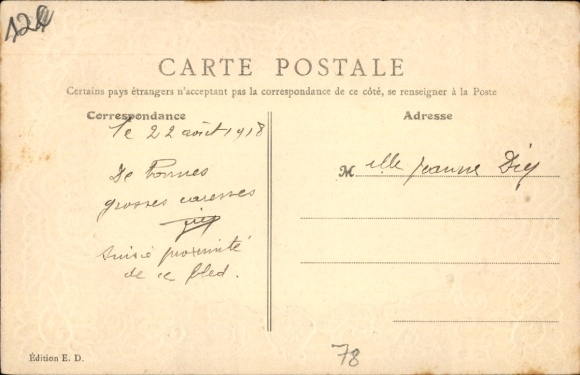 CARTE POSTALE
Certains pays étrangers n'acceptant pas la correspondance de ce côté, se renseigner à la Poste
Correspondance
Adresse
le 22 août 1918
De Bonnes
grosses caresses
proximité
de ce bled.
Mlle Jeanne
Édition E. D.
78